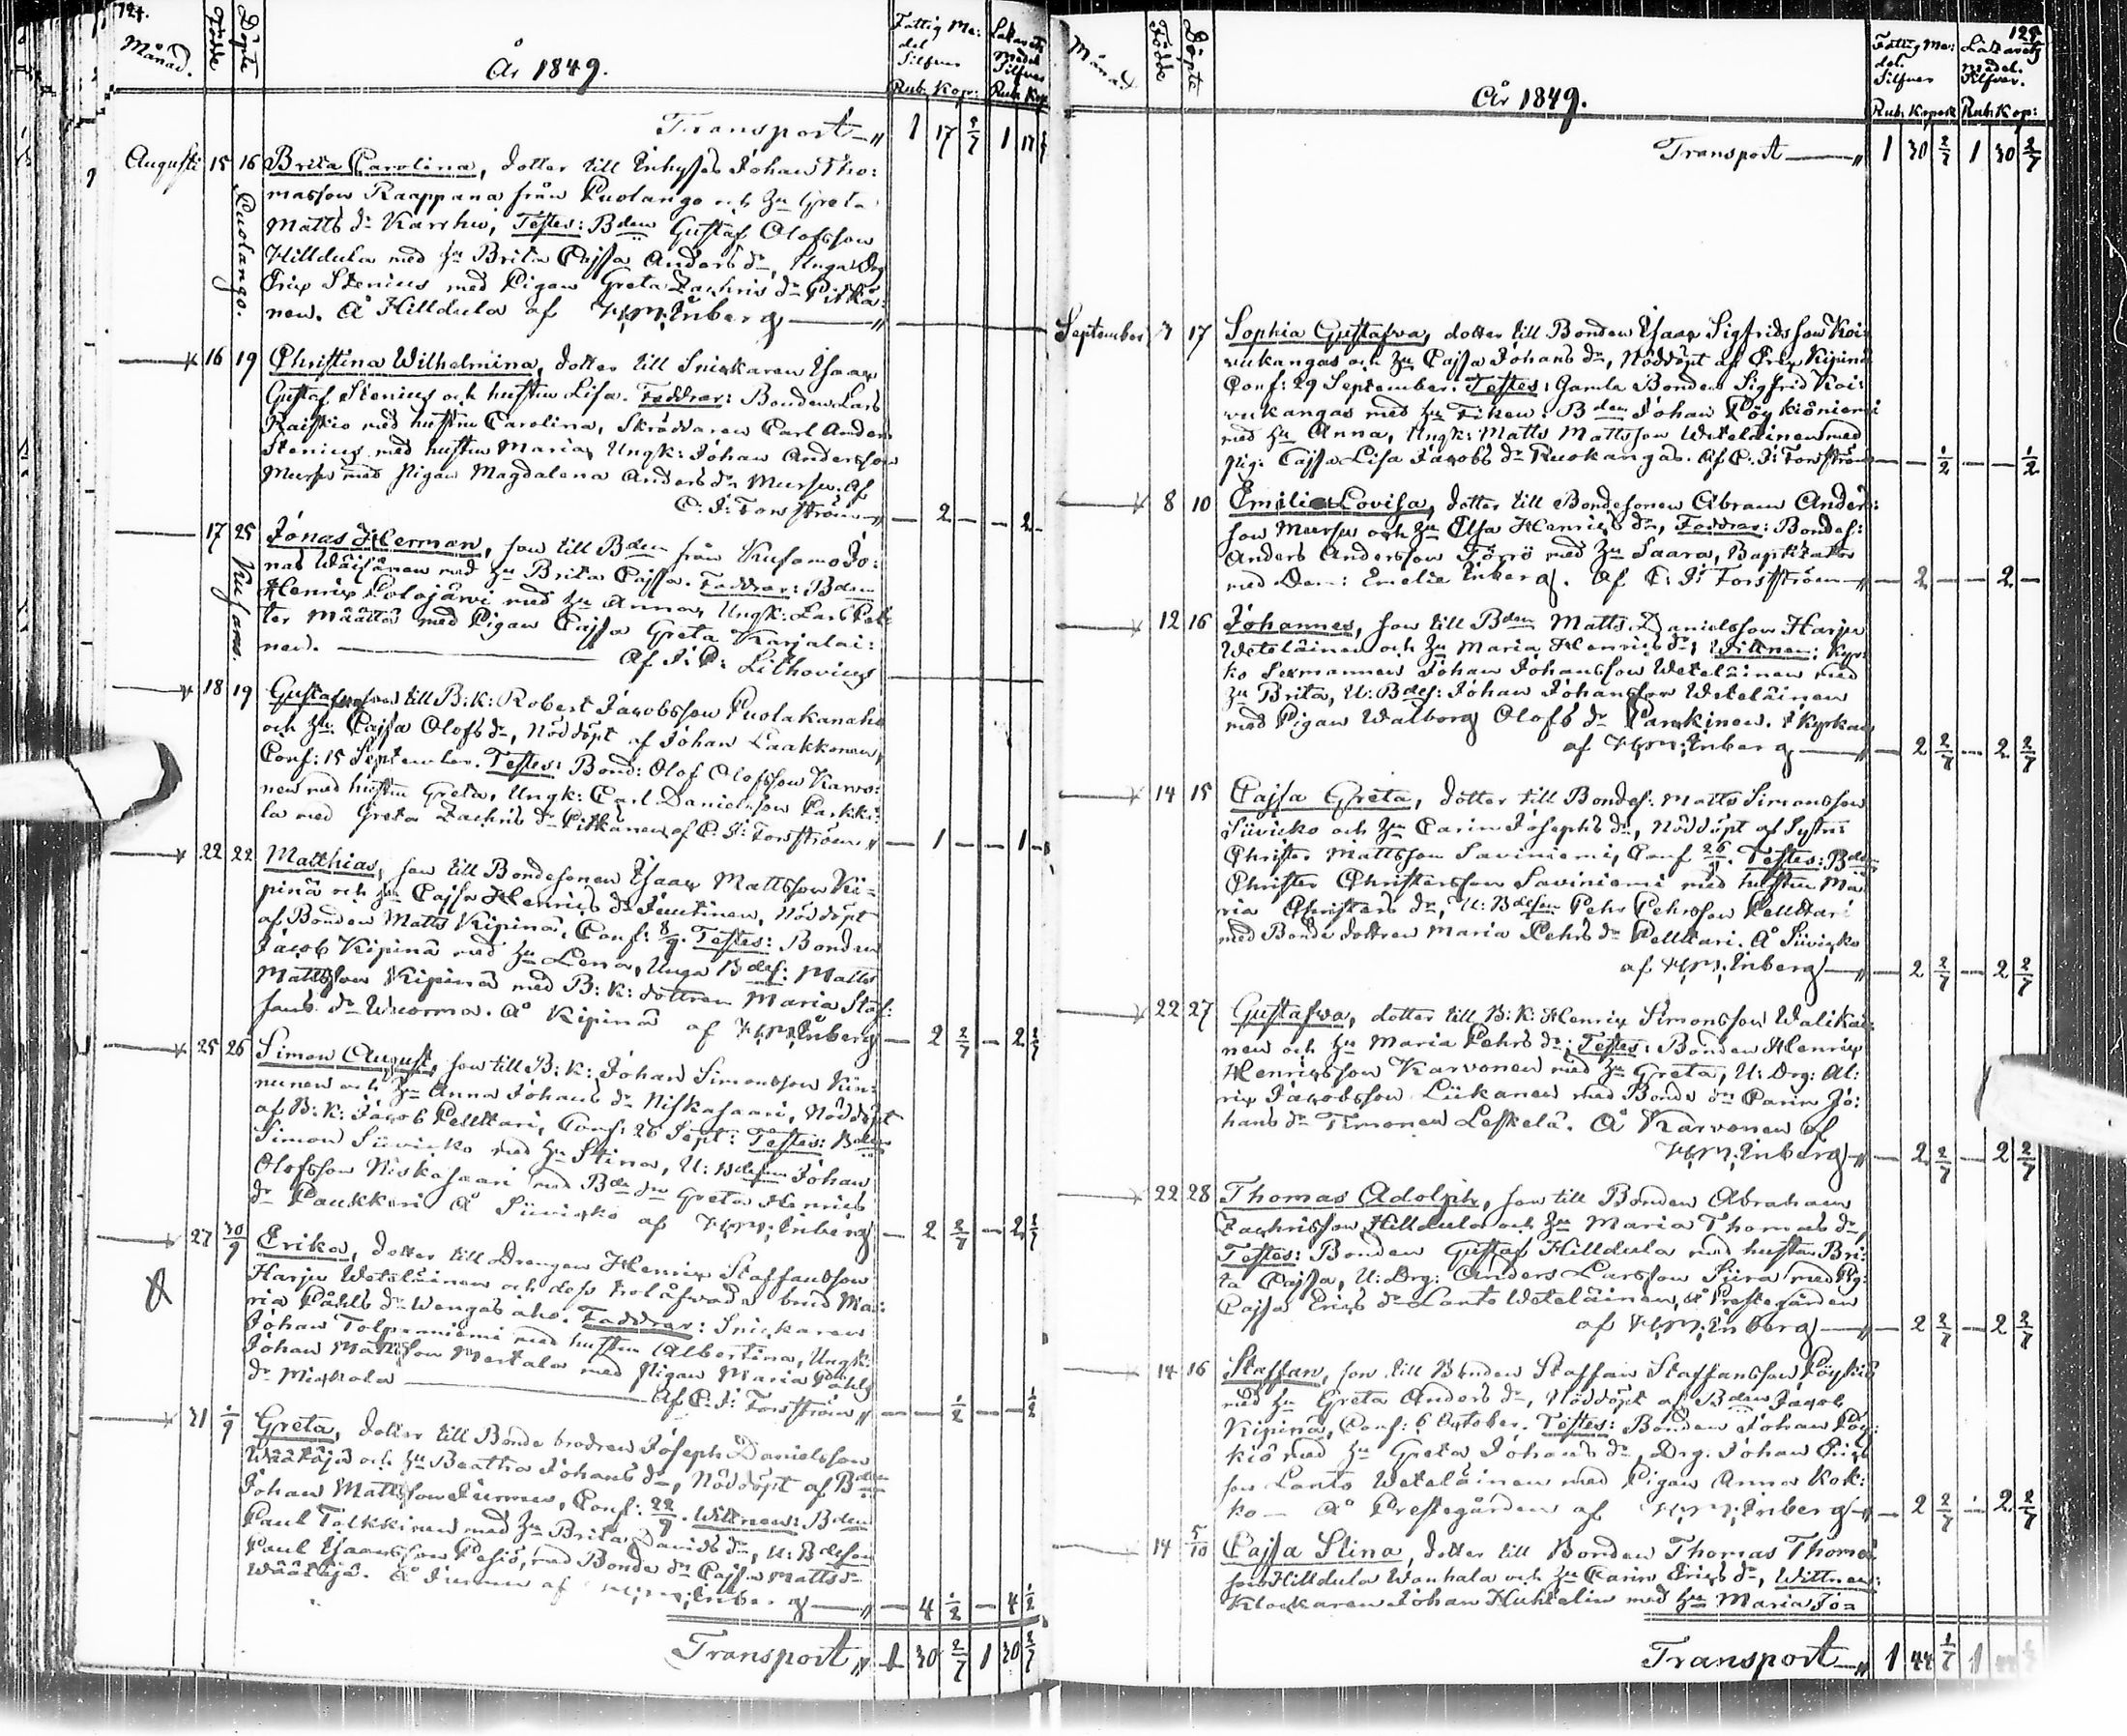 124.
Månad.
Födde
Döpte
År 1849.
Fattig Me:
del
Silfver
Rub. Kop:
Lasaretts
Medel
Silfver
Rub. Kop
Transport — " 1 17 2/7 1 17
Augusti 15 16 Brita Carolina, dotter till Inhyses Johan Tho:
masson Raappana från Puolango och Hu Greta
Matts dr Karrhu, Testes: Bden Gustaf Olofsson
Hilldula med Hu Brita Cajsa Anders dr, Unga Drg
Eric Stenius med Pigan Greta Zachris dr Pitkä:
nen. Å Hilldula af H.M. Enberg — "
Puolango.
16 19 Christina Wilhelmina, dotter till Snickaren Isaac
Gustaf Stenius och hustru Lisa. Faddrar: Bonden Lars
Raiskio med hustru Carolina, Skräddaren Carl Anders
Stenius med hustru Maria, Ungk: Johan Andersson
Mursu med pigan Magdalena Anders dr Mursu. Af
C. J: Forsström " — 2 — — 2 —
17 25 Jonas Herman, son till Bden från Kusamo Jo:
nas Wäisänen med Hu Brita Cajsa. Faddrar: Bden
Henric Lolojärvi med Hu Anna, Ungk: Lars Pet
ter Määttä med Pigan Cajsa Greta Karjalai:
nen. — Af J: C: Lithovius
Kusamo.
18 19 Gustaf, son till B: K: Robert Jacobsson Puolakanaho
och Hu Cajsa Olofs dr, Nöddöpt af Johan Laakkonen,
Conf: 15 September. Testes: Bond: Olof Olofsson Karvo:
nen med hustru Greta, Ungk: Carl Danielsson Parkki:
la med Greta Zachris dr Pitkänen, af C. J: Forsström " — 1 — — 1 —
22 22 Matthias, son till Bondesonen Isaac Mattsson Ki=
pinä och Hu Cajsa Henrics dr Juutinen, Nöddöpt
af Bonden Matts Kipinä, Conf: 8/9. Testes: Bonden
Jacob Kipinä med Hu Lena, Unga Bdes: Matts
Mattsson Kipinä med B: K: dottren Maria Staf:
fans dr Wuorma. Å Kipinä af H.M. Enberg — 2 2/7 — 2 2/7
25 26 Simon August, son till B: K: Johan Simonsson Kin:
nunen och Hu Anna Johans dr Niskasaari, Nöddöpt
af B: K: Jacob Pellikari, Conf: 26 Sept: Testes: Bden
Simon Siivicko med Hu Stina, U: Bdeson Johan
Olofsson Niskasaari med Bde dr Greta Henrics
dr Paukkeri Å Siivicko af H.M. Enberg — 2 2/7 — 2 2/7
27 30/9 Erika, dotter till Drengen Henric Staffansson
Harju Weteläinen och dess trolåfvade brud Ma:
ria Påhls dr Wengas aho. Faddrar: Snickaren
Johan Tolpanniemi med hustru Albertina, Ungk:
Johan Mattsson Mertala med Pigan Maria Påhls
dr Mickola — Af C. J: Forsström " — — 1/2 — — 1/2
31 1/9 Greta, dotter till Bonde brodren Joseph Danielsson
Wäätäjä och Hu Beatha Johans dr, Nöddöpt af Bden
Johan Mattsson Jurmu, Conf: 22/9. Wittnen: Bden
Paul Tölkkinen med Hu Brita Davids dr, U: Bdeson
Paul Isaacsson Pesiö, med Bonde dr Cajsa Matts dr
Wäätäjä. Å Jurmu af H.M. Enberg — " — 4 1/2 — 4 1/2
Transport " 1 30 2/7 1 30 2/7
125
Månad
Födde
Döpte
År 1849.
Fattig Me:
del.
Silfver
Rub. Kopek
Lasaretts
Medel.
Silfver.
Rub. Kop:
Transport — " 1 30 2/7 1 30 2/7
September 7 17 Sophia Gustafva, dotter till Bonden Isaac Sigfridsson Koi:
vukangas och Hu Cajsa Johans dr, Nöddöpt af Eric Kipinä
Conf: 29 September. Testes: Gamla Bonden Sigfrid Koi:
vukangas med Hu Fiken: Bden Johan Pöykiöniemi
med Hu Anna, Ungk: Matts Mattsson Weteläinen med
Pig: Cajsa Lisa Jacobs dr Ruokangas. Af C. J: Forsström — — 1/2 — — 1/2
8 10 Emilie Lovisa, dotter till Bondesonen Abram Anders:
son Mursu och Hu Elsa Henrics dr, Faddrar: Bondes:
Anders Andersson Törrö med Hu Saara, Baptizator
med Dem: Emelie Enberg. Af C: J: Forsström " — 2 — — 2 —
12 16 Johannes, son till Bden Matts Danielsson Harju
Weteläinen och Hu Maria Henrics dr, Wittnen: Kyr:
ko Sexmannen Johan Johansson Weteläinen med
Hu Brita, U: Bdes: Johan Johansson Weteläinen
med Pigan Walborg Olofs dr Parckinen. I Kyrkan
af H.M. Enberg — " — 2 2/7 — 2 2/7
14 15 Cajsa Greta, dotter till Bondes: Matts Simonsson
Siivicko och Hu Carin Josephs dr, Nöddöpt af Sytn:
Christer Mattsson Saviniemi, Conf 26/9. Testes: Bden
Christer Christersson Saviniemi med hustru Ma
ria Christers dr, U: Bdeson Pehr Pehrsson Pellikari
med Bonde dottren Maria Pehrs dr Pellikari. Å Siivicko
af H.M. Enberg — " — 2 2/7 — 2 2/7
22 27 Gustafva, dotter till B: K: Henric Simonsson Walikai:
nen och Hu Maria Pehrs dr; Testes: Bonden Henric
Henricsson Karvonen med Hu Greta, U: Drg: Al:
ric Jacobsson Liikanen med Bonde dr Carin Jo:
hans dr Timonen Leskelä. Å Karvonen af
H.M. Enberg — " — 2 2/7 — 2 2/7
22 28 Thomas Adolph, son till Bonden Abraham
Zachrisson Hilldula och Hu Maria Thomas dr,
Testes: Bonden Gustaf Hilldula med hustru Bri:
ta Cajsa, U: Drg: Anders Larsson Siira med Pig:
Cajsa Erics dr Lanto Weteläinen, å Prestegården
af H.M. Enberg — " — 2 2/7 — 2 2/7
14 16 Staffan, son till Bonden Staffan Staffansson Pöykiö
med Hu Greta Anders dr, Nöddöpt af Bden Jacob
Kipinä, Conf: 6 October. Testes: Bonden Johan Pöy:
kiö med Hu Greta Johans dr, Drg: Johan Erics
son Lanto Weteläinen med Pigan Anna Kok:
ko — Å Prestegården af H.M. Enberg " — 2 2/7 — 2 2/7
14 5/10 Cajsa Stina, dotter till Bonden Thomas Thomas
son Hilldula Wanhala och Hu Karin Erics dr, Wittnen:
Klockaren Johan Huhtelin med Hu Maria Jo=
Transport — " 1 44 1/7 1